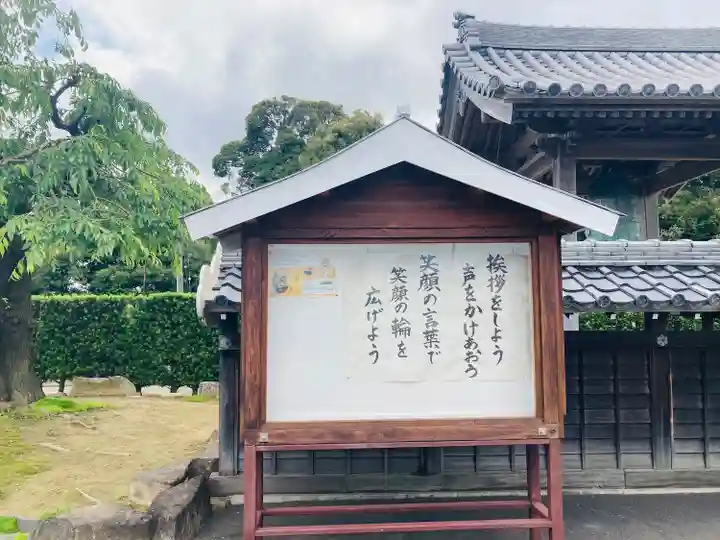 挨拶をしよう
声をかけあおう
笑顔の言葉で
笑顔の輪を
広げよう